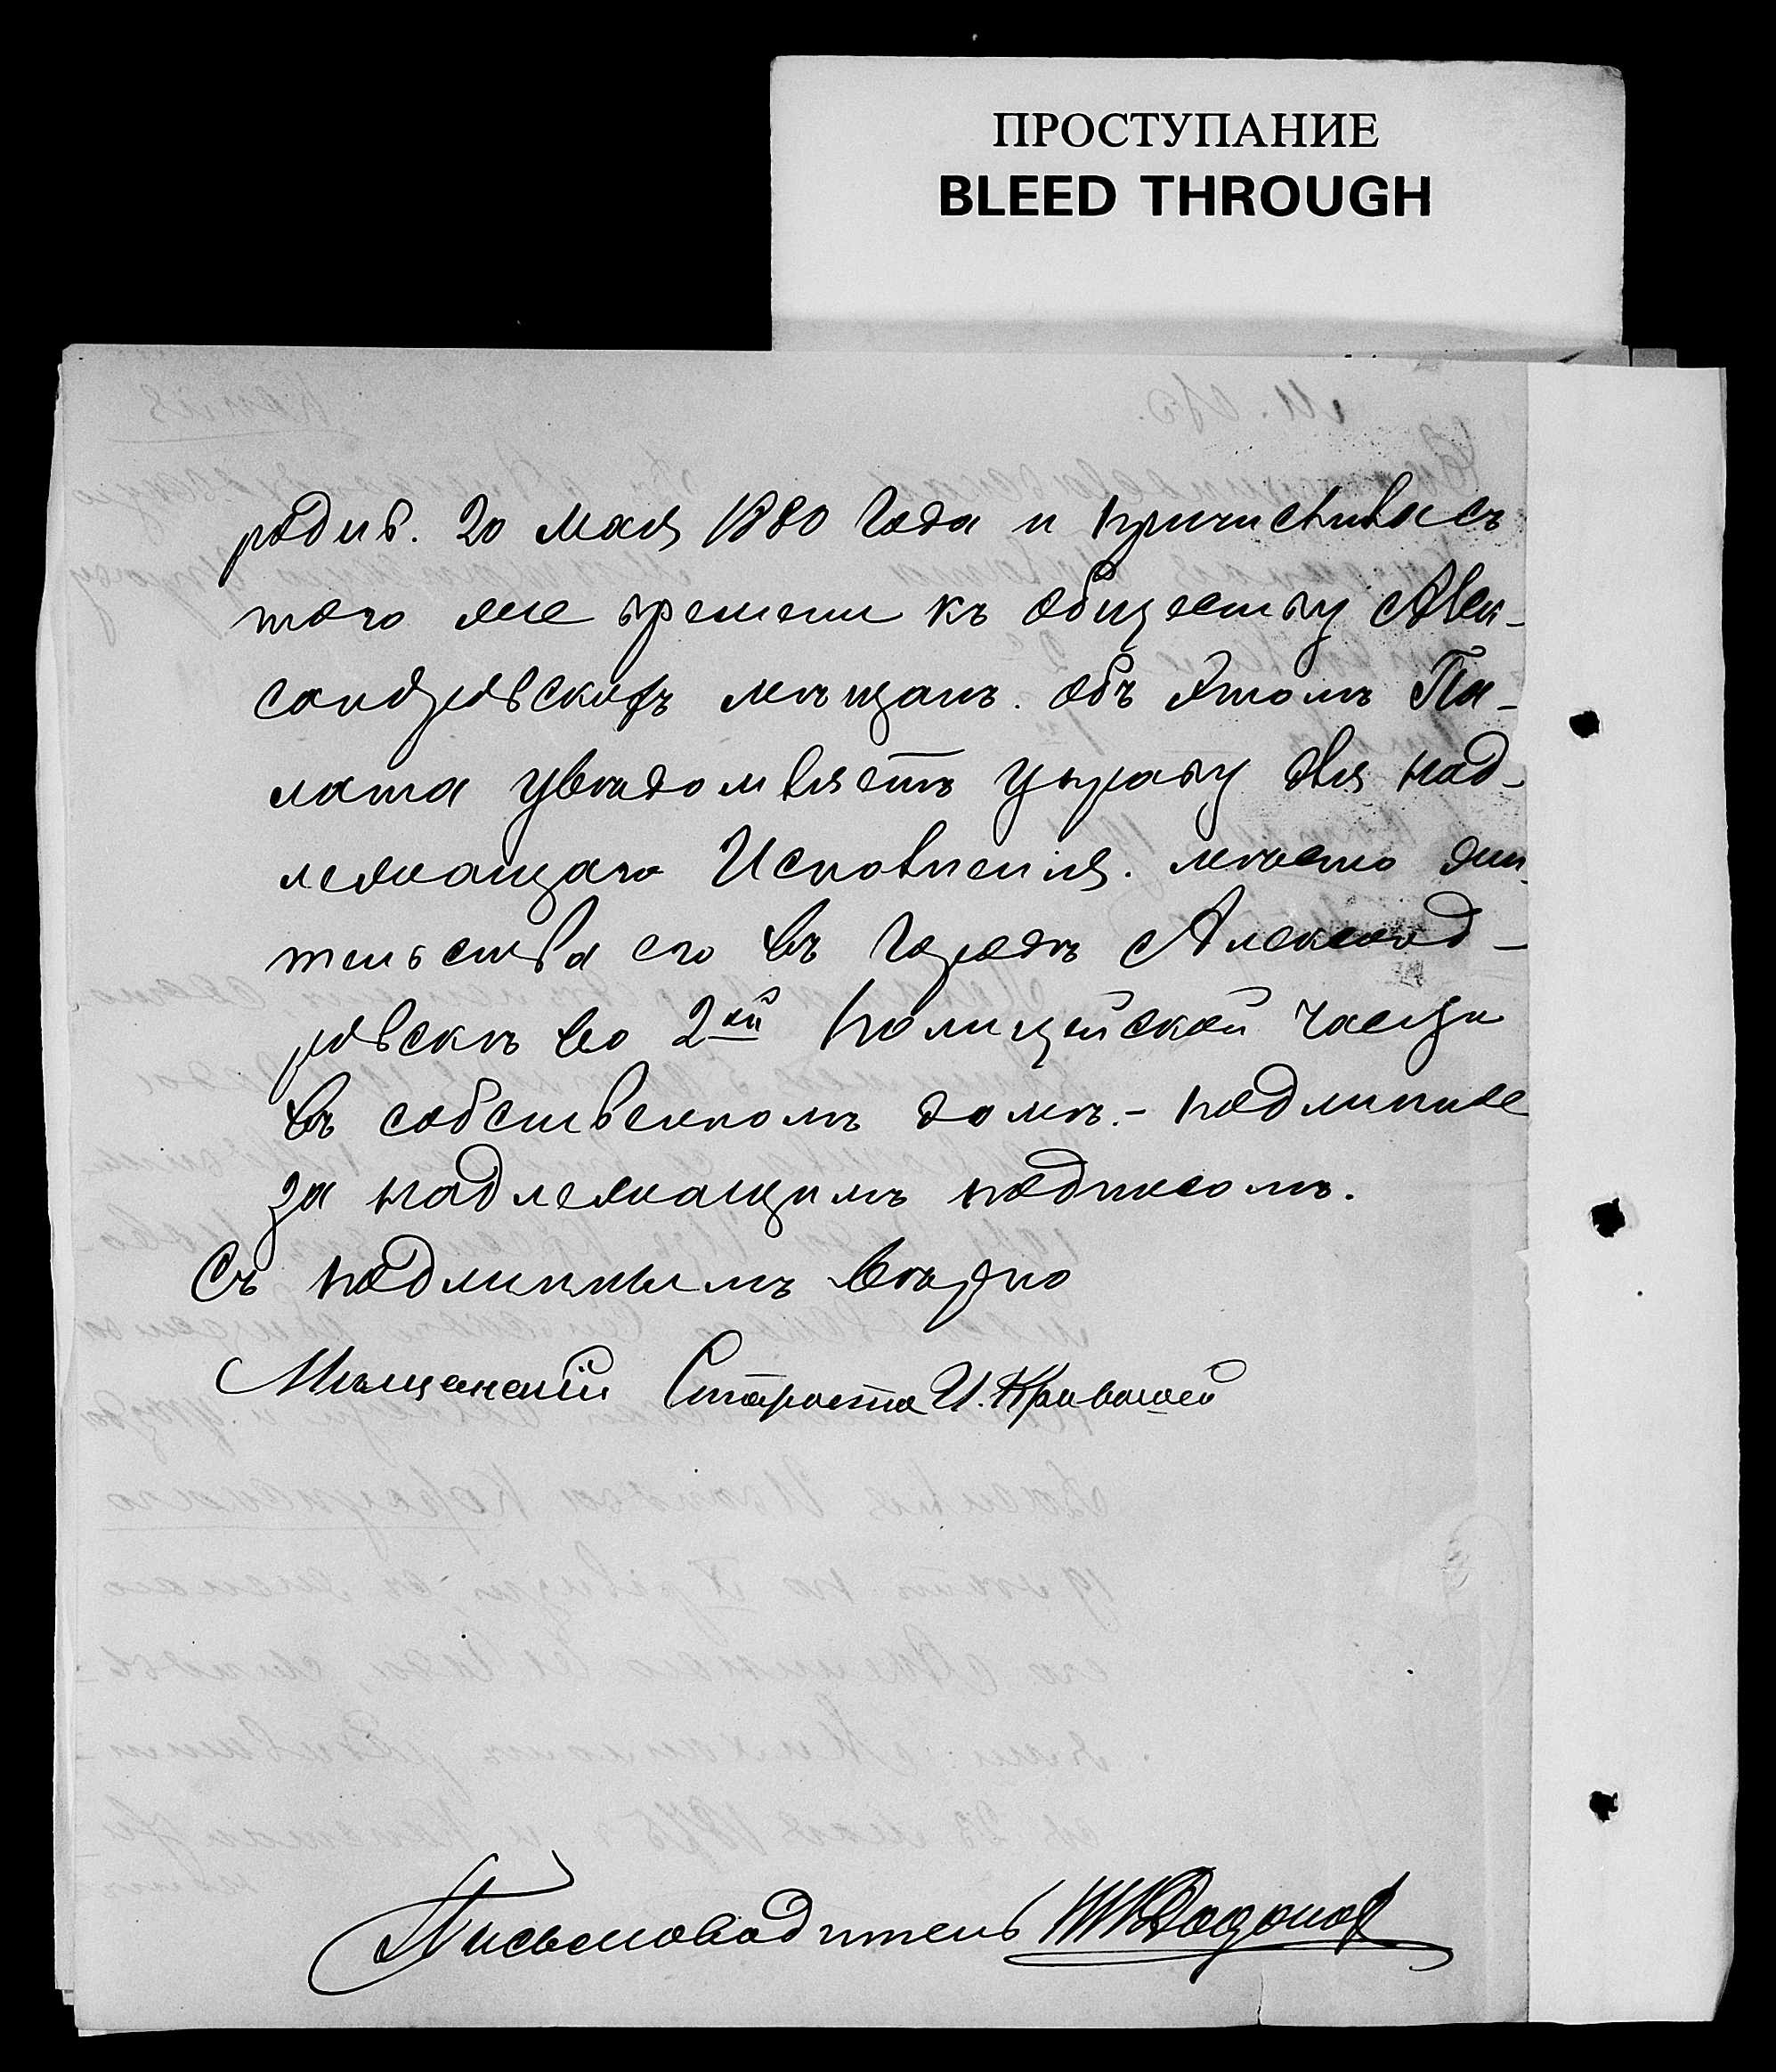 ПРОСТУПАНИЕ
BLEED THROUGH
родив. 20 Мая 1880 Года и причисливъ съ
того же времени къ обществу Алек-
сандровскихъ мѣщанъ. объ этомъ Па-
лата увѣдомляетъ управу для над-
лежащаго Исполненія. мѣсто жи-
тельства его въ городѣ Александ-
ровскѣ во 2ой полицейской части
въ собственномъ домѣ. - подлинное
за надлежащимъ подписомъ.
Съ подлиннымъ вѣрно
Мѣщанскій Староста И. 
Письмоводитель